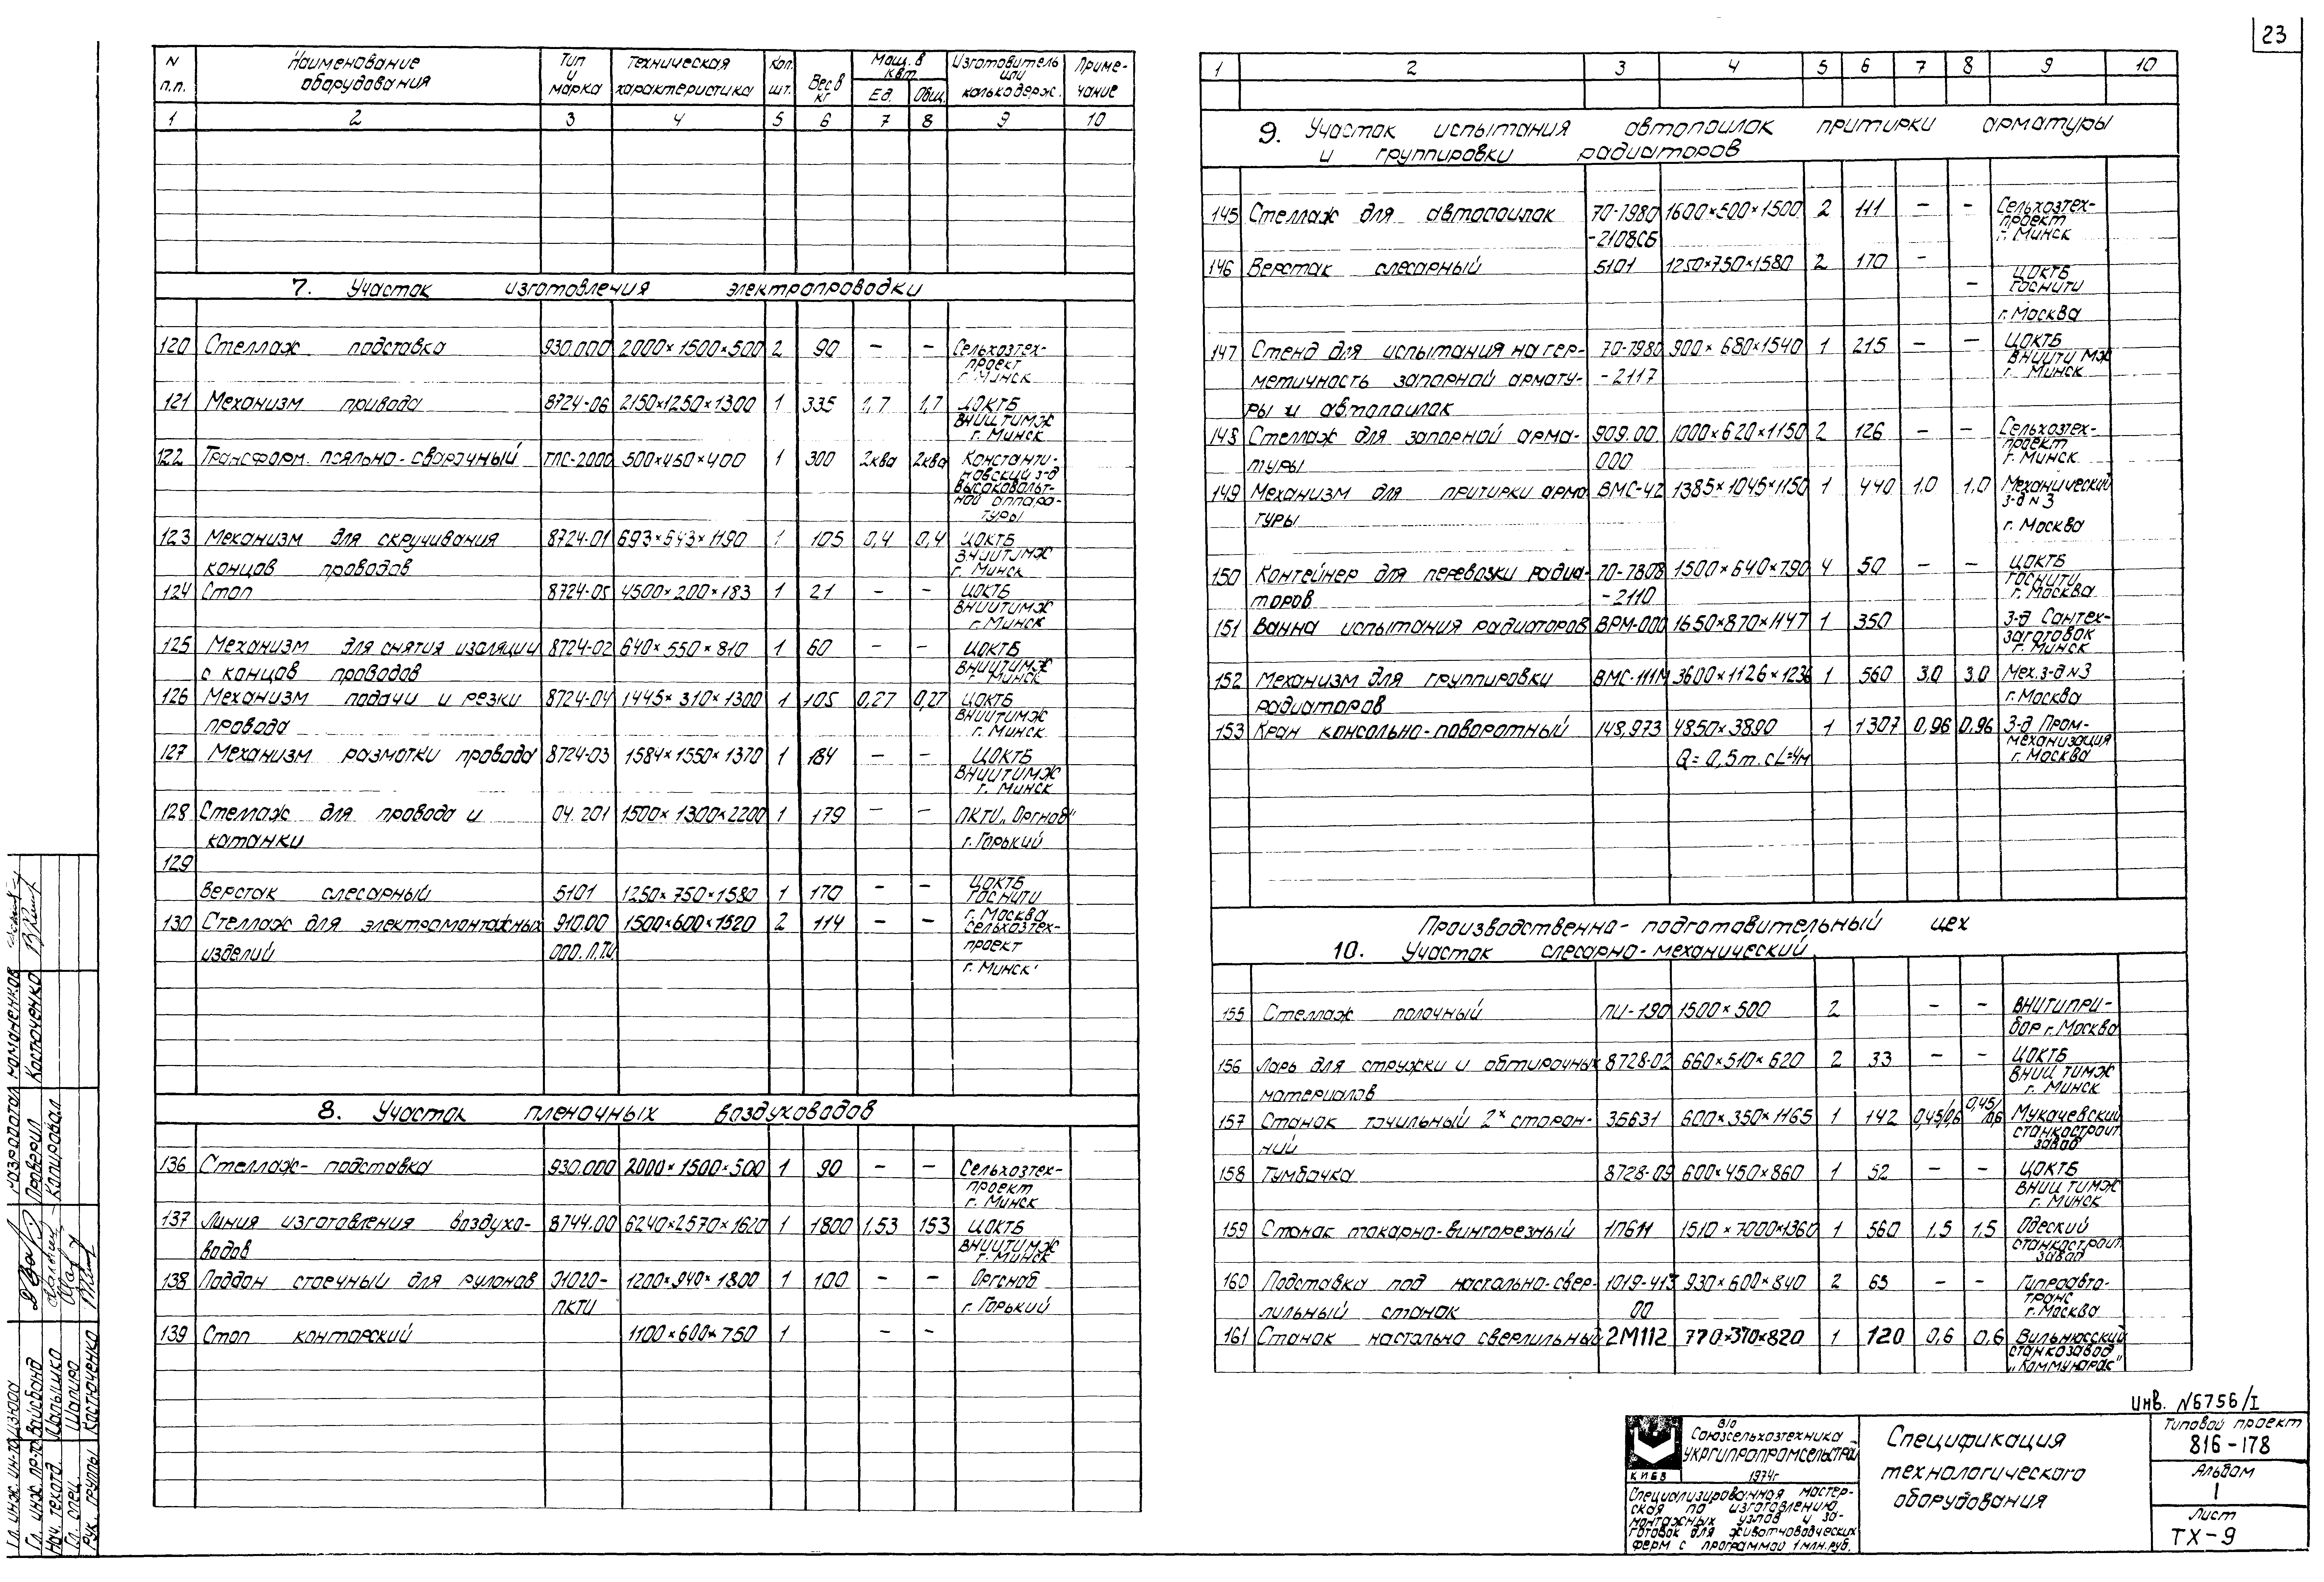 23
N п.п. Наименование оборудования Тип и марка Техническая характеристика Кол. шт. Вес в кг Мощ. в квт Ед. Общ. Изготовитель или калькодерж. Примечание
1 2 3 4 5 6 7 8 9 10
7. Участок изготовления электропроводки
120 Стеллаж подставка 930.000 2000×1500×500 2 90 – – Сельхозтех-
проект
г. Минск
121 Механизм привода 8724-06 2150×1250×1300 1 335 1,7 1,7 ЦОКТБ
ВНИИТИМЖ
г. Минск
122 Трансформ. паяльно-сварочный ТПС-2000 500×450×400 1 300 2ква 2ква Константи-
новский з-д
высоковольт-
ной аппара-
туры
123 Механизм для скручивания 8724-01 693×543×1190 1 105 0,4 0,4 ЦОКТБ
концов проводов ВНИИТИМЖ
г. Минск
124 Стол 8724-05 4500×200×183 1 21 – – ЦОКТБ
ВНИИТИМЖ
г. Минск
125 Механизм для снятия изоляции 8724-02 640×550×810 1 60 – – ЦОКТБ
с концов проводов ВНИИТИМЖ
г. Минск
126 Механизм подачи и резки 8724-04 1445×310×1300 1 105 0,27 0,27 ЦОКТБ
провода ВНИИТИМЖ
г. Минск
127 Механизм размотки провода 8724-03 1584×1550×1370 1 184 – – ЦОКТБ
ВНИИТИМЖ
г. Минск
128 Стеллаж для провода и 04.201 1500×1300×2200 1 179 – – ПКТИ „Оргснаб"
катанки г. Горький
129
верстак слесарный 5101 1250×750×1580 1 170 – – ЦОКТБ
ГОСНИТИ
г. Москва
130 Стеллаж для электромонтажных 910.00 1500×600×1520 2 114 – – Сельхозтех-
изделий 000. П.ТИ проект
г. Минск
8. Участок пленочных воздуховодов
136 Стеллаж-подставка 930.000 2000×1500×500 1 90 – – Сельхозтех-
проект
г. Минск
137 Линия изготовления воздухо- 8744.00 6240×2570×1620 1 1800 1,53 153 ЦОКТБ
водов ВНИИТИМЖ
г. Минск
138 Поддон стоечный для рулонов Э1020- 1200×940×1800 1 100 – – Оргснаб
ПКТИ г. Горький
139 Стол конторский 1100×600×750 1 – –
1 2 3 4 5 6 7 8 9 10
9. Участок испытания автопоилок притирки арматуры
и группировки радиаторов
145 Стеллаж для автопоилок 70-7980 1600×500×1500 2 111 – – Сельхозтех-
-2108СБ проект
г. Минск
146 Верстак слесарный 5101 1250×750×1580 2 170 –
– ЦОКТБ
ГОСНИТИ
г. Москва
147 Стенд для испытания на гер- 70-7980 900×680×1540 1 215 – – ЦОКТБ
метичность запорной армату- -2117 ВНИИТИМЖ
ры и автопоилок г. Минск
148 Стеллаж для запорной арма- 909.00 1000×620×1150 2 126 – – Сельхозтех-
туры 000 проект
г. Минск
149 Механизм для притирки арма ВМС-42 1385×1045×1150 1 440 1.0 1,0 Механический
туры з-д N3
г. Москва
150 Контейнер для перевозки радиа- 70-7808 1500×640×790 4 50 – – ЦОКТБ
торов -2110 ГОСНИТИ
г. Москва
151 Ванна испытания радиаторов ВРМ-000 1650×870×1147 1 350 з-д Сантех-
заготовок
г. Минск
152 Механизм для группировки ВМС-111М 3600×1126×1236 1 560 3,0 3,0 Мех. з-д N3
радиаторов г. Москва
153 Кран консольно-поворотный 148,973 4850×3890 1 1307 0,96 0,96 З-д Пром-
механизация
Q=0,5т. сL=4м г. Москва
Производственно-подготовительный цех
10. Участок слесарно-механический
155 Стеллаж полочный ПИ-190 1500×500 2 – – ВНИТИПРИ-
бор г. Москва
156 Ларь для стружки и обтирочных 8728-02 660×510×620 2 33 – – ЦОКТБ
материалов ВНИИТИМЖ
г. Минск
157 Станок точильный 2х сторон- 3Б631 600×350×1165 1 142 0,45/0,6 0,45/0,6 Мукачевский
ний станкостроит.
завод
158 Тумбочка 8728-09 600×450×860 1 52 – – ЦОКТБ
ВНИИТИМЖ
г. Минск
159 Станок токарно-винторезный 1П611 1510×7000×1360 1 560 1,5 1,5 Одеский
станкостроит.
завод
160 Подставка под настольно-свер- 1019-413 930×600×840 2 65 – – Гипроавто-
лильный станок 00 транс
г. Москва
161 Станок настольно сверлильный 2М112 770×370×820 1 120 0,6 0,6 Вильнюсский
станкозавод
„Коммунарас"
Инв. N6756/I
КИЕВ
В/о
Союзсельхозтехника
УКРГИПРОПРОМСЕЛЬСТРОЙ
1974г
Специализированная мастер-
ская по изготовлению
монтажных узлов и за-
готовок для животноводческих
ферм с программой 1 млн.руб.
Спецификация
технологического
оборудования
Типовой проект
816-178
Альбом
I
Лист
ТХ-9
Гл. инж. ин-та Дзюба
Гл. инж. пр-та Вайсбанд
Нач. техотд. Малышко
Гл. спец. Шапиро
Рук. группы Костюченко
Разработал Романенков
Проверил Костюченко
Копировал